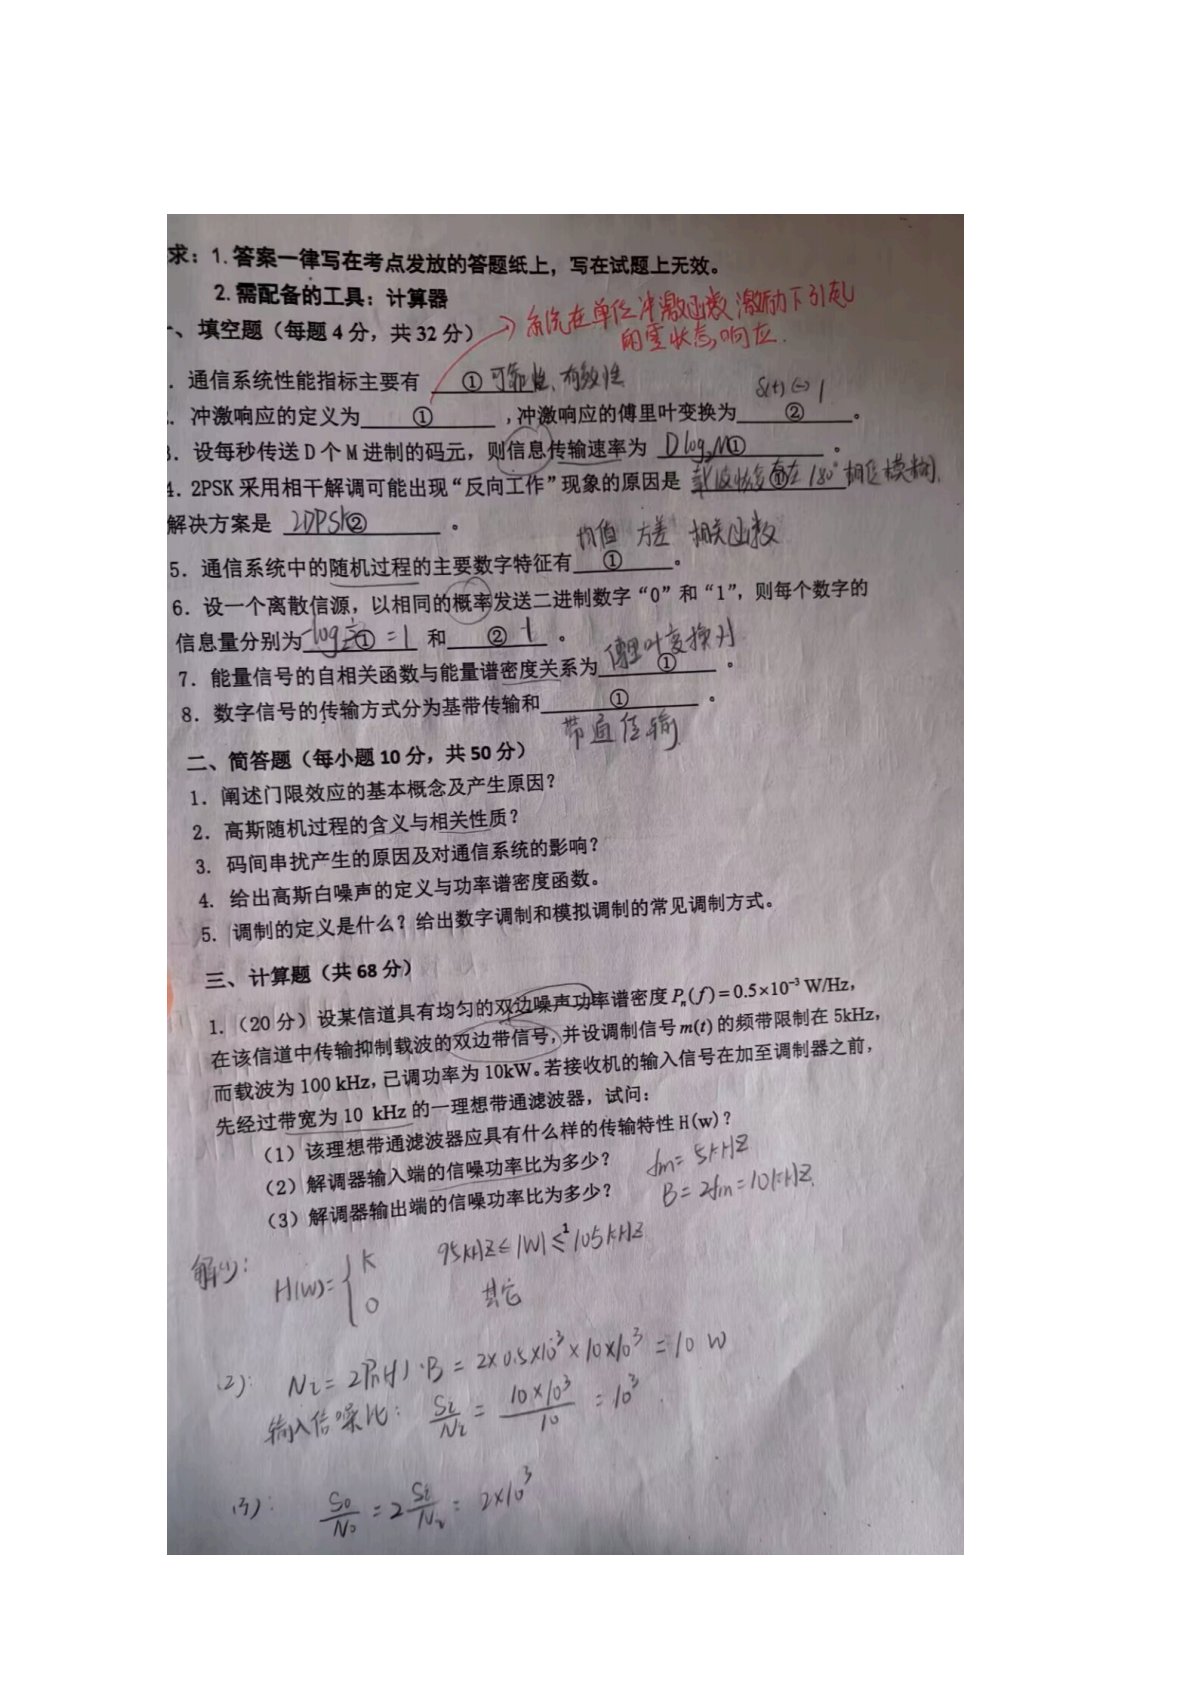 求：1.答案一律写在考点发放的答题纸上，写在试题上无效。
2.需配备的工具：计算器
系统在单位冲激函数激励下引起
的零状态响应.
一、填空题（每题4分，共32分）
. 通信系统性能指标主要有 ① 可靠性、有效性
δ(t)⇔1
. 冲激响应的定义为 ① ,冲激响应的傅里叶变换为 ② 。
3. 设每秒传送D个M进制的码元，则信息传输速率为 Dlog₂M① 。
4. 2PSK采用相干解调可能出现“反向工作”现象的原因是 载波恢复①存在180°相位模糊,
解决方案是 2DPSK② 。
均值 方差 相关函数
5. 通信系统中的随机过程的主要数字特征有 ① 。
6. 设一个离散信源，以相同的概率发送二进制数字“0”和“1”，则每个数字的
信息量分别为 -log₂½① =1 和 ② 1 。
7. 能量信号的自相关函数与能量谱密度关系为 傅里叶变换对 ① 。
8. 数字信号的传输方式分为基带传输和 ① 。
带通传输
二、简答题（每小题10分，共50分）
1. 阐述门限效应的基本概念及产生原因？
2. 高斯随机过程的含义与相关性质？
3. 码间串扰产生的原因及对通信系统的影响？
4. 给出高斯白噪声的定义与功率谱密度函数。
5. 调制的定义是什么？给出数字调制和模拟调制的常见调制方式。
三、计算题（共68分）
1.（20分）设某信道具有均匀的双边噪声功率谱密度Pn(f)=0.5×10⁻³ W/Hz，
在该信道中传输抑制载波的双边带信号，并设调制信号m(t)的频带限制在5kHz，
而载波为100 kHz，已调功率为10kW。若接收机的输入信号在加至调制器之前，
先经过带宽为10 kHz的一理想带通滤波器，试问：
（1）该理想带通滤波器应具有什么样的传输特性H(w)？
（2）解调器输入端的信噪功率比为多少？
（3）解调器输出端的信噪功率比为多少？
fm=5kHz
B=2fm=10kHz.
1
解(1): H(w)={ K 95kHz≤|W|≤105kHz
0 其它
(2): Ni=2Pn(f)·B=2×0.5×10⁻³×10×10³=10 W
输入信噪比: Si/Ni = 10×10³/10 = 10³.
(3): So/No = 2 Si/Ni = 2×10³